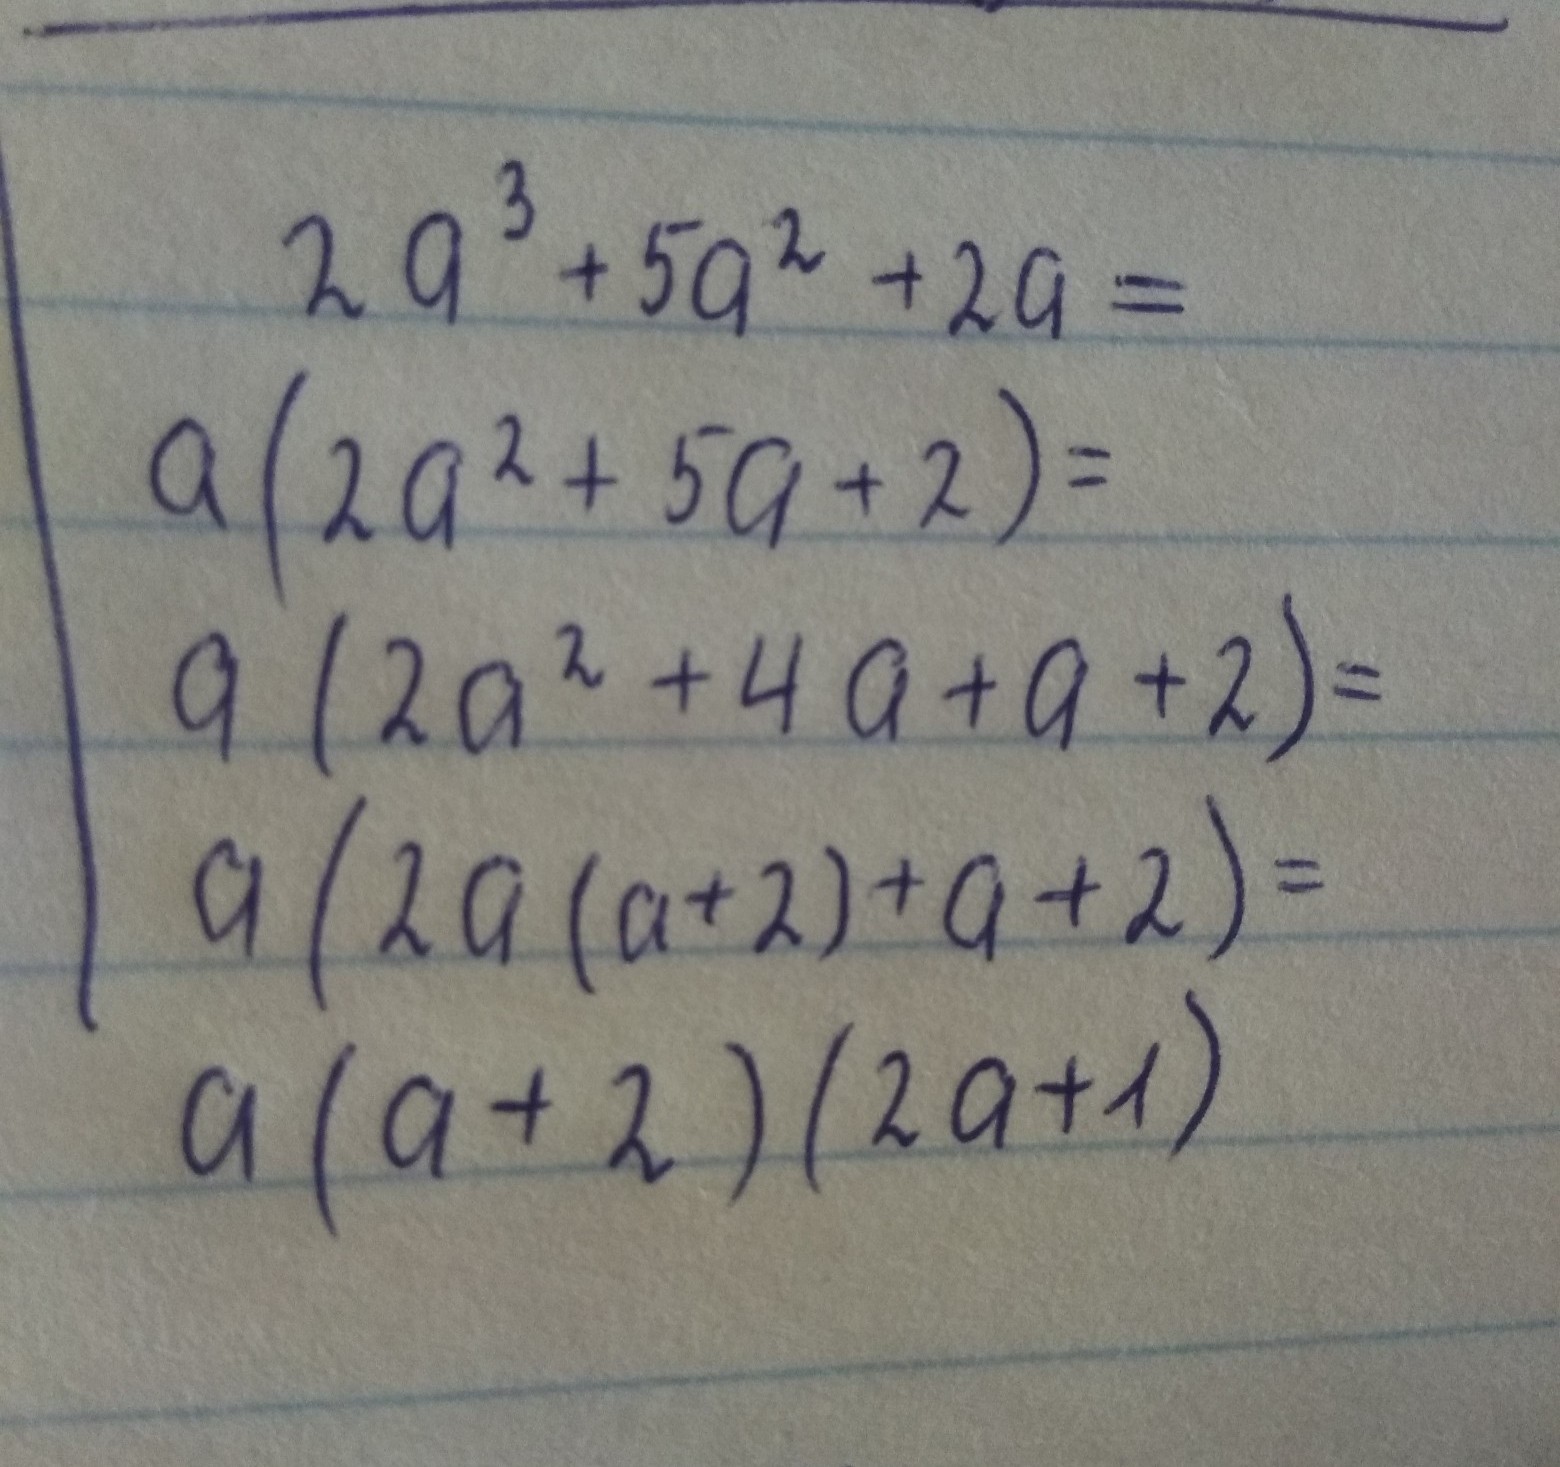 2a³ + 5a² + 2a =
a(2a² + 5a + 2) =
a(2a² + 4a + a + 2) =
a(2a(a+2) + a + 2) =
a(a + 2)(2a + 1)